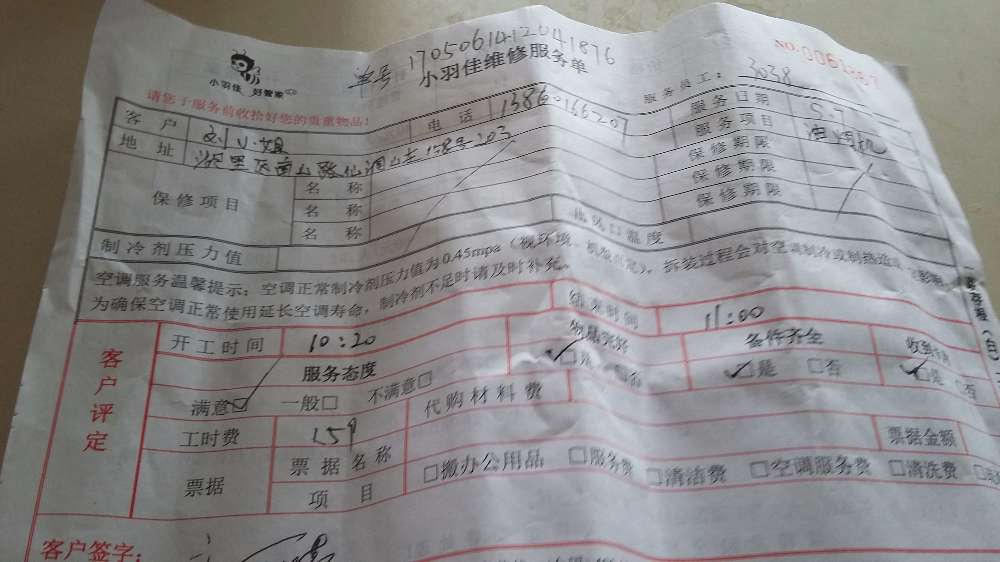 单号 170506141204 1876
小羽佳 好管家
小羽佳维修服务单
NO.
请您于服务前收拾好您的贵重物品!
服务员工: 3038
客 户 刘小姐 电 话 服务日期 5.7
地 址 服务项目 油烟机
保修项目 名 称 保修期限
名 称 保修期限
名 称 保修期限
制冷剂压力值 出风口温度
空调服务温馨提示:空调正常制冷剂压力值为0.45mpa(视环境、机型创定),拆装过程会对空调制冷或制热造成
为确保空调正常使用延长空调寿命,制冷剂不足时请及时补充。
客户评定
开工时间 10:20 结束时间 11:00
服务态度 物品完好 备件齐全
满意□ 一般□ 不满意□ □是 □否 □是 □否 □是 □否
工时费 159 代购材料费
票据 票据名称 票据金额
项 目 □搬办公用品 □服务费 □清洁费 □空调服务费 □清洗费
客户签字: